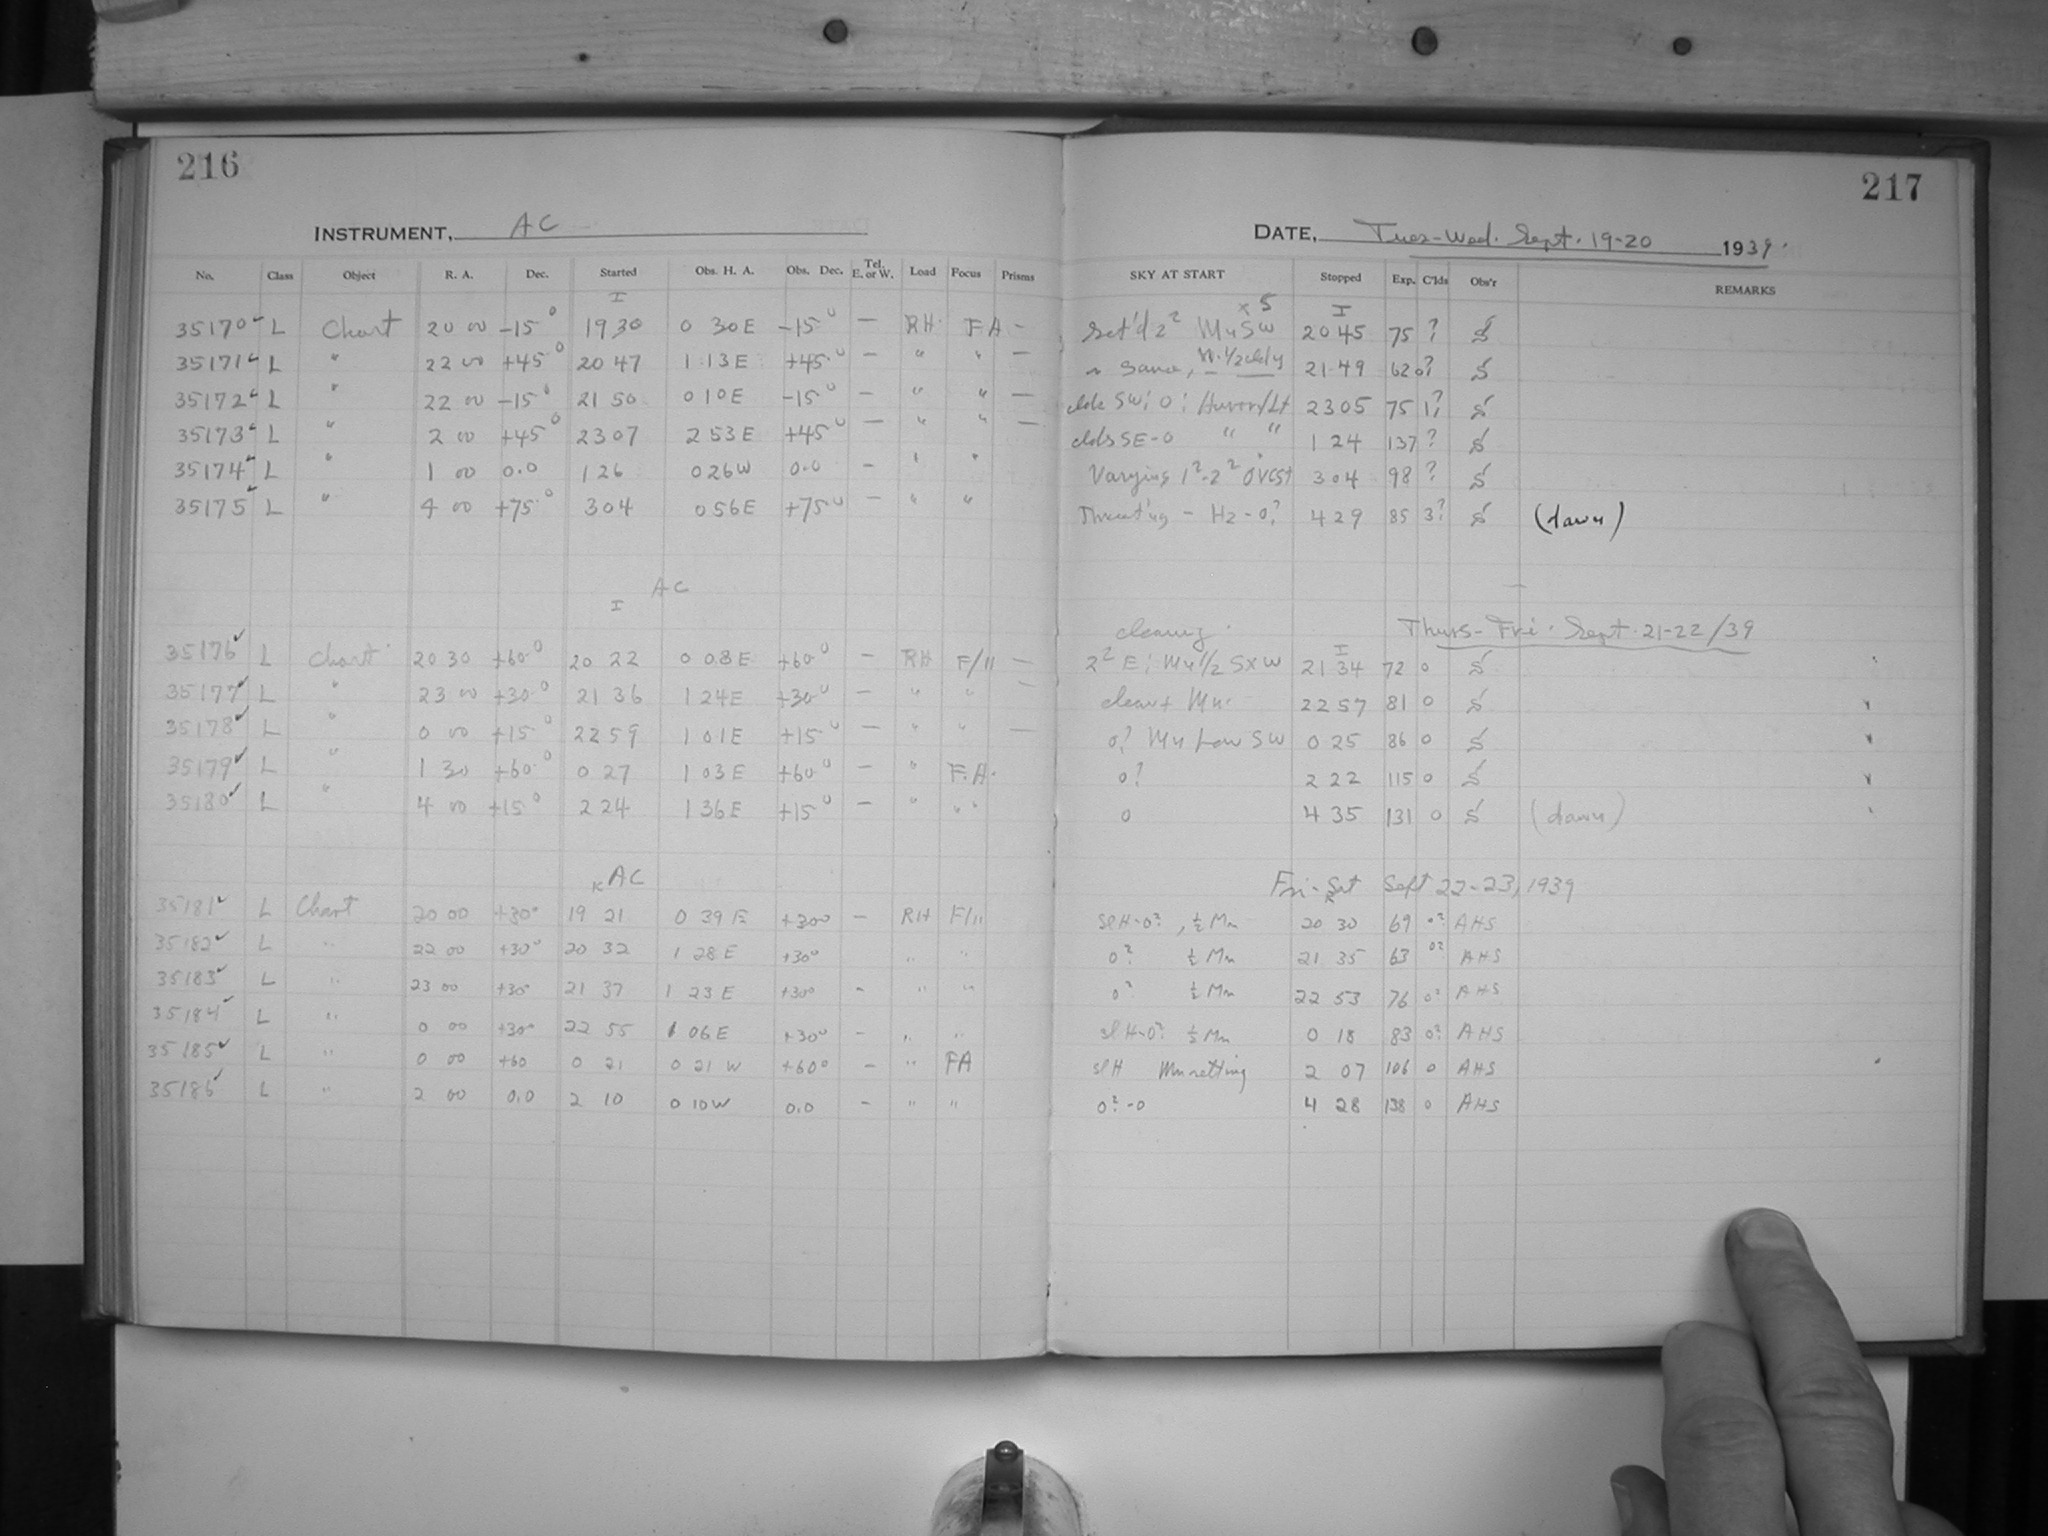 216
217
INSTRUMENT, AC
DATE, Tues-Wed. Sept. 19-20 1939.
No. Class Object R. A. Dec. Started Obs. H. A. Obs. Dec. Tel. E. or W. Load Focus Prisms SKY AT START Stopped Exp. C'lds Obs'r REMARKS
I × 5 I
35170 ✓ L Chart 20 00 -15° 19 30 0 30 E -15° - RH FA - 2² Mn SW 20 45 75 ?
35171 ✓ L " 22 00 +45° 20 47 1 13 E +45° - " " - Same, 1/2 cldy 21 49 62 0?
35172 ✓ L " 22 00 -15° 21 50 0 10 E -15° - " " - SW; 0; 23 05 75 1?
35173 ✓ L " 2 00 +45° 23 07 2 53 E +45° - " " - clds SE-0 " " 1 24 137 ?
35174 ✓ L " 1 00 0.0 1 26 0 26 W 0.0 - " " Varying 1²-2² Ovcst 3 04 98 ?
35175 ✓ L " 4 00 +75° 3 04 0 56 E +75° - " " - Hz - 0? 4 29 85 3? (dawn)
AC
I
clearing Thurs-Fri. Sept. 21-22/39
I
35176 ✓ L Chart 20 30 +60° 20 22 0 08 E +60° - RH F/11 - 2² E; Mn 1/2 SXW 21 34 72 0
35177 ✓ L " 23 00 +30° 21 36 1 24 E +30° - " " - clear + Mn 22 57 81 0
35178 ✓ L " 0 00 +15° 22 59 1 01 E +15° - " " - 0? Mn Low SW 0 25 86 0
35179 ✓ L " 1 30 +60° 0 27 1 03 E +60° - " F.A. 0? 2 22 115 0
35180 ✓ L " 4 00 +15° 2 24 1 36 E +15° - " " 0 4 35 131 0 (dawn)
AC
Fri-Sat Sept 22-23, 1939
35181 ✓ L Chart 20 00 +30° 19 21 0 39 E +30° - RH F/11 sl H-0?, ½ Mn 20 30 69 0? AHS
35182 ✓ L " 22 00 +30° 20 32 1 28 E +30° " " 0? ½ Mn 21 35 63 0? AHS
35183 ✓ L " 23 00 +30° 21 37 1 23 E +30° - " " 0? ½ Mn 22 53 76 0? AHS
35184 ✓ L " 0 00 +30° 22 55 1 06 E +30° - " " sl H-0? ½ Mn 0 18 83 0? AHS
35185 ✓ L " 0 00 +60 0 21 0 21 W +60° - " FA sl H Mn setting 2 07 106 0 AHS
35186 ✓ L " 2 00 0.0 2 10 0 10 W 0.0 - " " 0?-0 4 28 138 0 AHS